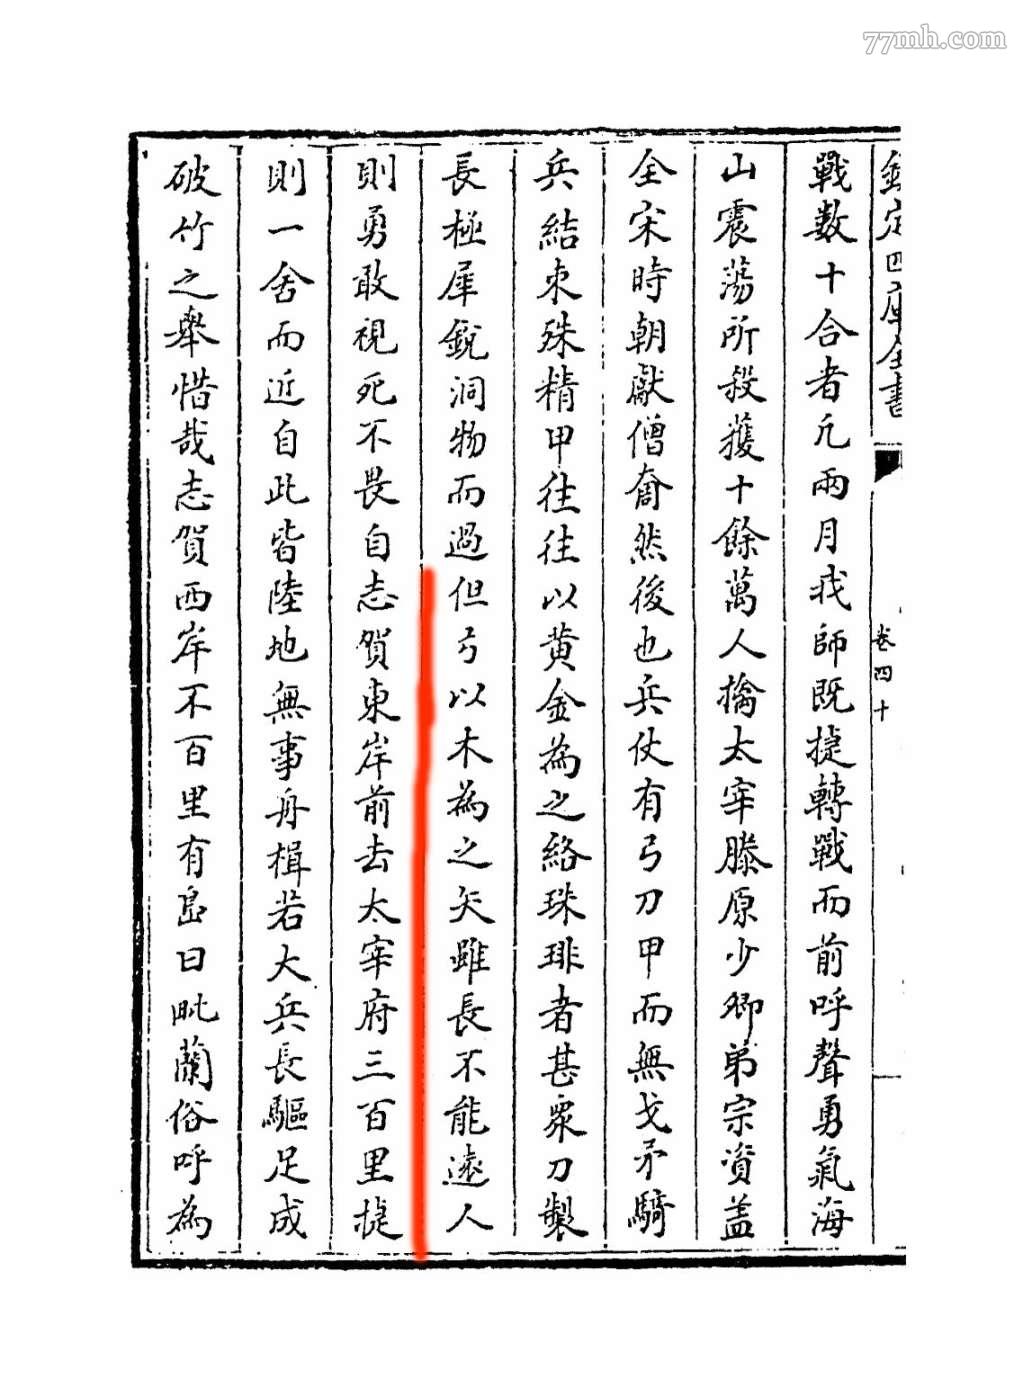 77mh.com
欽定四庫全書
卷四十
戰數十合者凢兩月我師既捷轉戰而前呼聲勇氣海
山震蕩所殺獲十餘萬人擒太宰滕原少卿弟宗資盖
全宋時朝獻僧奝然後也兵仗有弓刀甲而無戈矛騎
兵結束殊精甲往往以黄金為之絡珠琲者甚衆刀製
長極犀銳洞物而過但弓以木為之矢雖長不能遠人
則勇敢視死不畏自志賀東岸前去太宰府三百里捷
則一舍而近自此皆陸地無事舟楫若大兵長驅足成
破竹之舉惜哉志賀西岸不百里有島曰毗蘭俗呼為